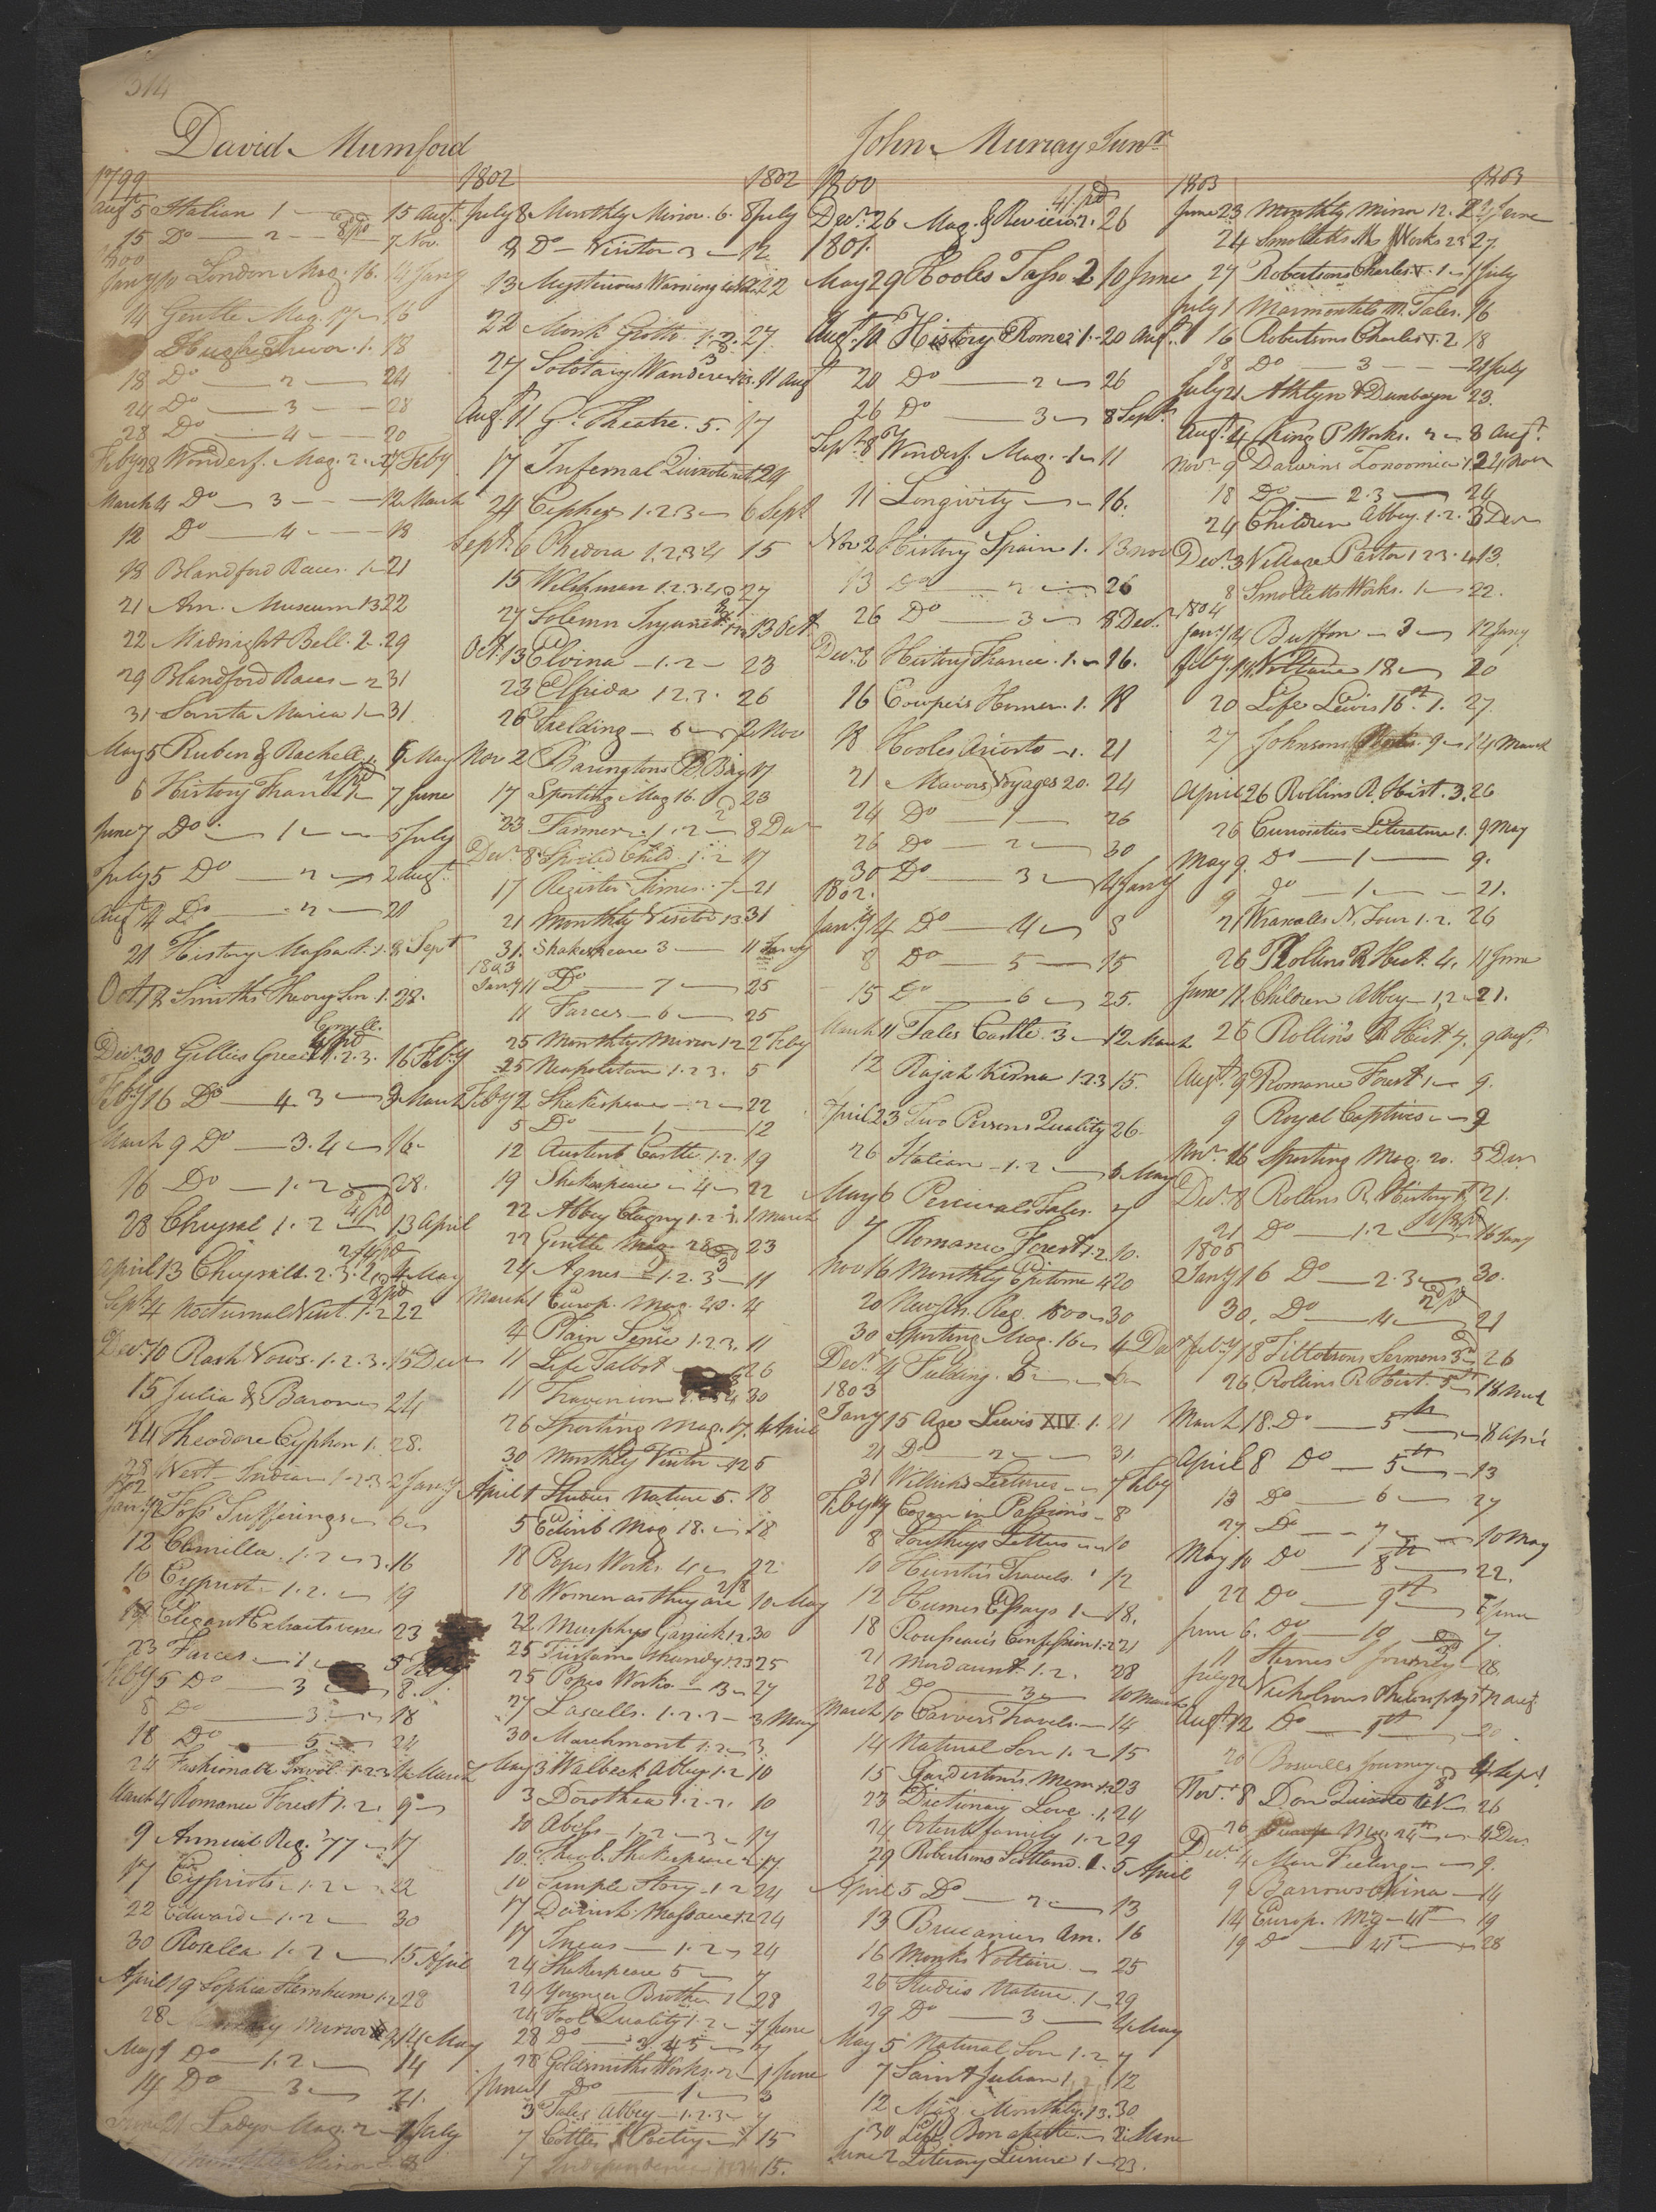 314
David Mumford
1799
Augt 5 Italian 1 15 Augt
15 Do 2 7 Nov.
1800
Jany 10 London Mag. 16. 14 Jany
14 Gentle Mag. 17 16
Hugh Trevor. 1. 18
18 Do 2 24
24 Do 3 28
28 Do 4 20
Feby 28 Wonderf. Mag. 2. 27 Feby
March 4 Do 3 12 March
12 Do 4 18
18 Blandford Races. 1 21
21 Am. Museum 13 22
22 Midnight Bell. 2. 29
29 Blandford Races 2 31
31 Santa Maria 1 31
May 5 Ruben & Rachell 1. 6 May
6 History France 7 June
June 7 Do 1 5 July
July 5 Do 2 2 Augt
Augt 4 Do 2 21
21 History Massact. 1. 8 Sept
Oct 18 Smiths Theory Sn. 1. 28.
Decr 30 Gillies Greece 1. 2. 3. 16 Feby
Feby 16 Do 4. 3 9 March
March 9 Do 3. 4 16
16 Do 1. 2 28.
28 Chrysal 1. 2 13 April
April 13 Chrysall. 2. 3. 2. 4 May
Sept 4 Nocturnal Visit. 1. 2 22
Decr 10 Rash Vows. 1. 2. 3. 15 Decr
15 Julia & Barones 24
24 Theodore Cyphon 1. 28.
28 West Indian 1. 2. 3 2 Jany
1802
Jany 2 Foss Sufferings 6
12 Camilla. 1. 2 3. 16
16 Cypriots 1. 2. 19
19 Elegant Extracts verse 23
23 Farces 1 5 Feby
Feby 5 Do 3 8.
8 Do 3 18
18 Do 5 24
24 Fashionable Invol. 1. 2. 3 4 March
March 4 Romance Forest 1. 2. 9
9 Annual Reg. 77 17
17 Cypriots 1. 2 22
22 Edward 1. 2 30
30 Rosella 1. 2 15 April
April 19 Sophia Sternheim 1. 2 28
28 Mirror 4 May
May 4 Do 1. 2 14
14 Do 3 21.
21 Ladys Mag. 2 July
Monthly Mirror 8
1802 1802
July 8 Monthly Mirror. 6. 8 July
8 Do Visitor 3 12
13 Mysterious Warning 22
22 Monk Groth. 1. 2. 27
27 Solotary Wanderer 11 Aug
Augt 11 G. Theatre. 5. 17
17 Infernal Quixote 24
24 Cephes 1. 2. 3 6 Sept
Sept 6 Phedora 1. 2. 3. 4 15
15 Welshman 1. 2. 3. 4 27
27 Solemn Injunct. 13 Oct
Oct 13 Elvina 1. 2 23
23 Elfrida 1. 2. 3. 26
26 Fielding 6 2 Nov
Nov 2 Baringtons B. Bay 17
17 Sporting Mag 16. 23
23 Farmer 1. 2 8 Decr
Decr 8 Spoiled Child 1. 2 17
17 Register Times 7 21
21 Monthly Visitor 13 31
31. Shakespeare 3 11 Jany
1803
Jany 11 Do 7 25
11 Farces 6 25
25 Monthly Mirror 12 2 Feby
25 Neapolitan 1. 2. 3. 5
Feby 2 Shakespeare 2 22
5 Do 1 12
12 Austenb Castle 1. 2. 19
19 Shakespeare 4 22
22 Abbey Clugny 1. 2. 3. 1 March
22 Gentle Mag 28 23
24 Agnes 1. 2. 3 11
March 1 Europ. Mag. 40. 4
4 Plain Sense 1. 2. 3. 11
11 Life Talbot 26
11 30
26 Sporting Mag. 17. 4 April
30 Monthly Visitor 12 5
April 1 Studies Nature 5. 18
5 Edinb Mag 18. 18
18 Popes Works 4 22
18 Women as they are 10 May
22 Murphys Garrick 1. 2. 30
25 Tristram Shandy 1. 2. 3 25
25 Popes Works 3 27
27 Lascells. 1. 2. 3 3 May
30 Marchmont 1. 2 3
May 3 Walbeck Abbey 1. 2 10
3 Dorothea 1. 2. 10
10 Abess 1. 2 3 17
10. Theob. Shakespeare 2 17
10 Simple Story 1. 2 24
17 Danish Massacre 1. 2 24
17 Ineas 1. 2 24
24 Shakespeare 5 7
24 Younger Brother 1 28
24 Fool Quality 1. 2 7 June
28 Do 3. 4 5 7
28 Goldsmiths Works. 2 1 June
June 1 Do 1 3
3 Tales Abbey 1. 2. 3 7
7 Cottles Poetry 15
7 Independence 15.
John Murray Junr
1800
Decr 26 Mag. & Review 2. 26
1801.
May 29 Hooles Tasso 2 10 June
Augt 10 History Rome 1. 20 Augt
20 Do 2 26
26 Do 3 8 Sept
Sept 8 Wonderf. Mag. 1 11
11 Longivity 16.
Nov 2 History Spain 1. 13 Nov
13 Do 2 26
26 Do 3 8 Decr
Decr 8 History France. 1. 16.
16 Cowpers Homer. 1. 18
18 Hooles Ariosto 1. 21
21 Mavors Voyages 20. 24
24 Do 1 26
26 Do 2 30
30 Do 3 4 Jany
1802.
Jany 4 Do 4 8
8 Do 5 15
15 Do 6 25.
March 11 Tales Castle. 3 12 March
12 Rajah Kisna 1. 2. 3 15.
April 23 Two Persons Quality 26.
26 Italian 1. 2 6 May
May 6 Percivals Tales. 7
7 Romance Forest 1. 2. 10.
Nov 16 Monthly Epitome 4 20
20 New An. Reg. 1800 30
30 Sporting Mag. 16 4 Decr
Decr 4 Fielding. 5
1803
Jany 15 Age Lewis XIV. 1. 21
21 Do 2 31
31 Wilkins Lectures 7 Feby
Feby 7 Cogan on Passions 8
8 Southeys Letters 10
10 Hunters Travels. 12
12 Humes Essays 1 18.
18 Rousseau's Confession 1. 2 21
21 Mordaunt. 1. 2. 28
28 Do 3 10 March
March 10 Carvers Travels. 14
14 Natural Son 1. 2 15
15 Gardestons Mem. 23
23 Dictionary Love. 1. 24
24 Ortenb family 1. 2 29
29 Robertsons Scotland. 1. 5 April
April 5 Do 2 13
13 Brucaniers Am. 16
16 Monks Voltaire 25
25 Studies Nature. 1 29
29 Do 3 4 May
May 5 Natural Son 1. 2 7
7 Saint Julian 1. 12
12 Mag. Monthly. 13. 30
30 Life Bonaparte 2 June
June 2 Literary Leisure 1 23.
1803 1803
June 23 Monthly Mirror 12. 23 June
24 Smolletts Ms Works 27
27 Robertsons Charles V. 1 1 July
July 1 Marmontels M. Tales. 16
16 Robertsons Charles V. 2 18
18 Do 3 21 July
July 21 Athlyn & Dunbayn 23.
Augt 4 King P. Works. 2 8 Augt
Novr 9 Darwins Zonoomia 1. 24 Nov
18 Do 2. 3 24
24 Children Abbey. 1. 2. 3 Decr
Decr 3 Village Pastor 1 2 3. 4 13.
8 Smolletts Works. 1 22.
1804
Jany 4 Buffon 3 12 Jany
Feby 14 Voltaire 18 20
20 Life Lewis 16th 1. 27
27 Johnsons 9 14 March
April 26 Rollins R. Hist. 3. 26
26 Curiosities Literature 1. 9 May
May 9 Do 1 9.
9 Do 1 21.
21 Wraxalls N. Tour 1. 2. 26
26 Rollins R Hist. 4. 11 June
June 11. Children Abbey 1. 2 21.
26 Rollins R Hist 7. 9 Augt
Augt 9 Romance Forest 1 9.
9 Royal Captives 9
Novr 26 Sporting Mag. 20. 5 Decr
Decr 8 Rollins R. History 21.
21 Do 1. 2 16 Jany
1805
Jany 16 Do 2. 3 30.
30. Do 4 21
Feby 18 Tillotsons Sermons 3d 26
26. Rollins R Hist. 5th 18 March
March 18. Do 5th 8 April
April 8 Do 5th 13
13 Do 6 27
27 Do 7 10 May
May 10 Do 8th 22.
22 Do 9th 6 June
June 6. Do 10 7
11 Sternes S Journey 28.
July 22 Nicholsons Philosophy 12 Augt
Augt 12 Do 1st 20
20 Boswells Journey 4 Sept
Novr 8 Don Quixote 26
26 Europ Mag 24th 4 Decr
Decr 4 Man Feeling 9.
9 Barrows China 14
14 Europ. Mg 41 19
19 Do 41 28